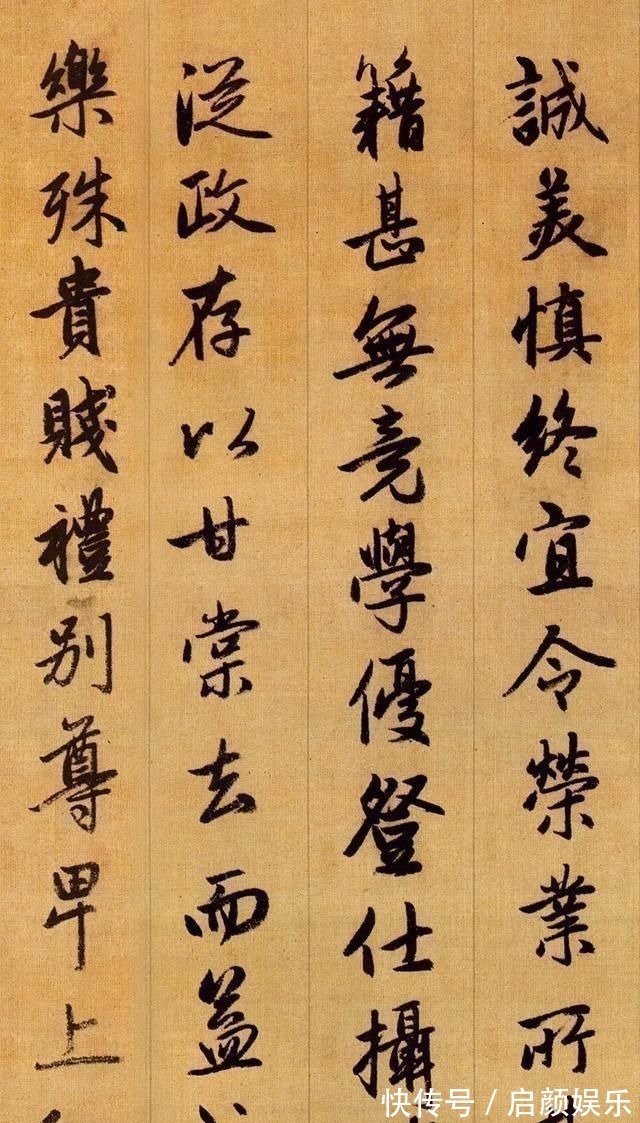 誠美慎終宜令榮業所
籍甚無竟學優登仕攝
從政存以甘棠去而益
樂殊貴賤禮別尊卑上
快传号 / 启颜娱乐